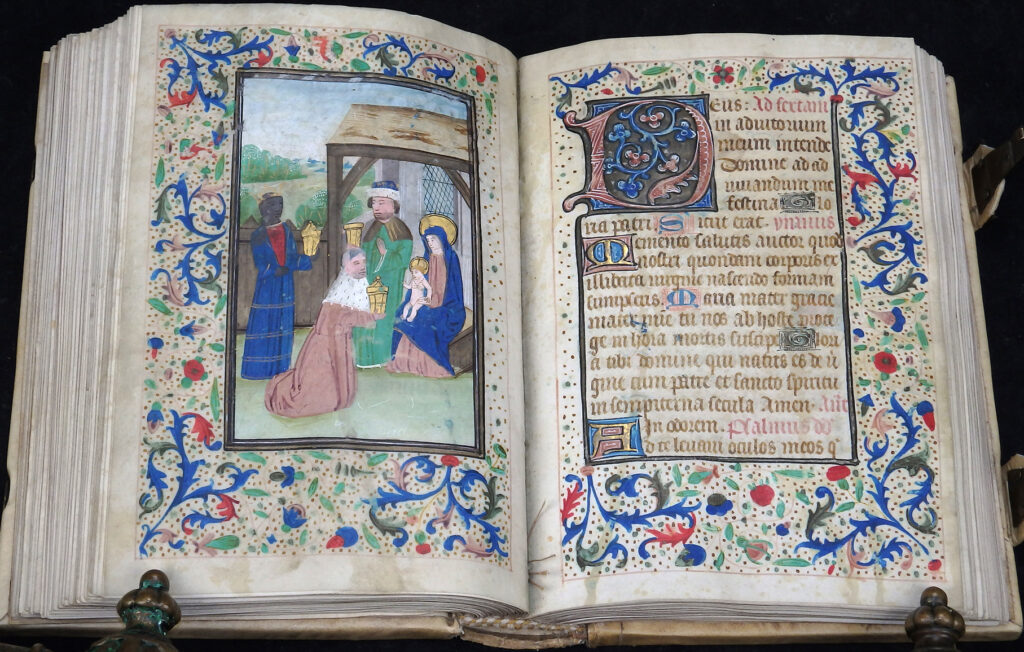 Deus: Ad sextam
in adiutorium
meum intende
Domine ad ad
iuuandum me
festina Glo
ria patri. Sicut erat. ymnus
Memento salutis auctor quod
nostri quondam corporis ex
illibata nascendo formam
sumpseris. Maria mater gracie
mater mie tu nos ab hoste prote
ge in hora mortis suscipe Glori
a tibi domine qui natus es de ui
gine cum patre et sancto spiritu
in sempiterna secula Amen. Ant
In odorem. Psalmus dd
Ad te leuaui oculos meos q